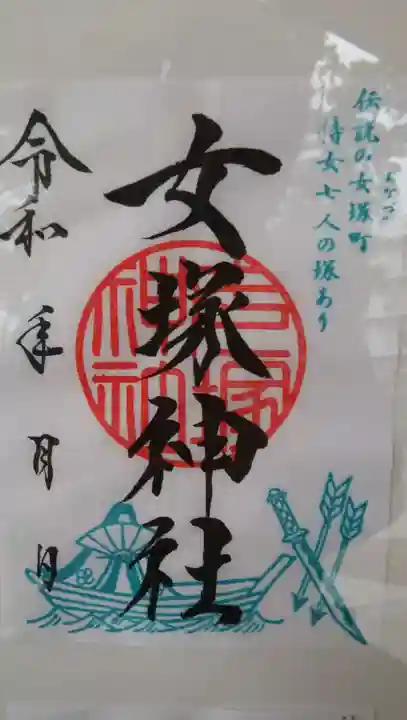 伝説の女塚町
侍女七人の塚あり
女塚神社
令和 年 月 日